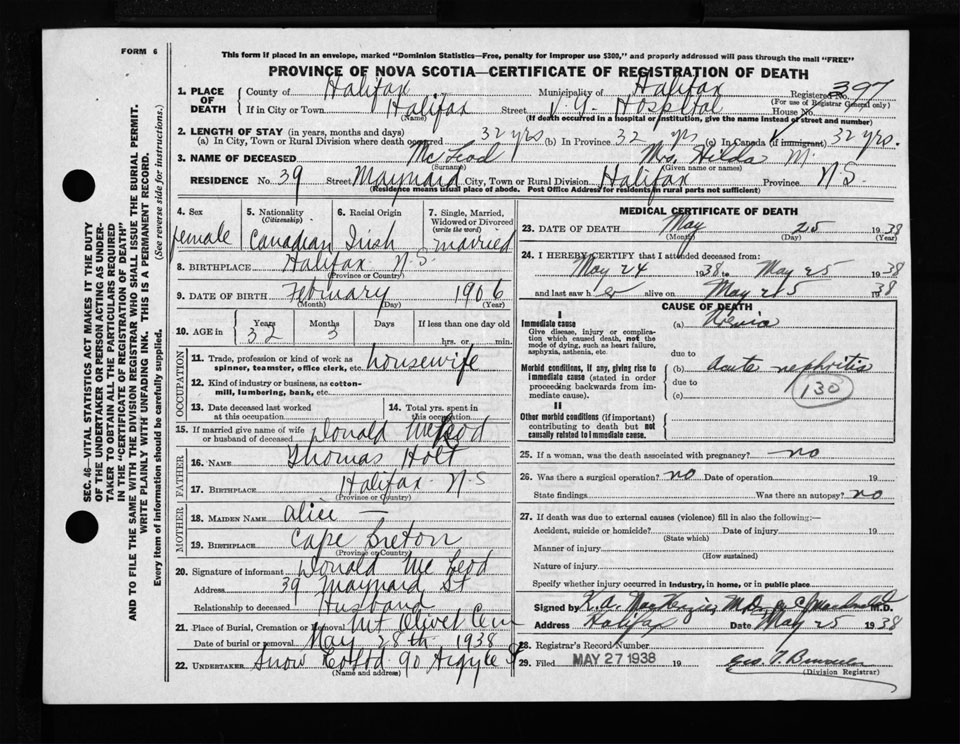 FORM 6
This form if placed in an envelope, marked "Dominion Statistics—Free, penalty for improper use $300," and properly addressed will pass through the mail "FREE"
PROVINCE OF NOVA SCOTIA—CERTIFICATE OF REGISTRATION OF DEATH
1. PLACE OF DEATH
County of Halifax Municipality of Halifax Registered No. 397
(For use of Registrar General only)
If in City or Town Halifax Street V. G. Hospital House No.
(Name) (If death occurred in a hospital or institution, give the name instead of street and number)
2. LENGTH OF STAY (in years, months and days)
(a) In City, Town or Rural Division where death occurred 32 yrs (b) In Province 32 yrs (c) In Canada (if immigrant) 32 yrs.
3. NAME OF DECEASED McLeod Mrs. Hilda M.
(Surname) (Given name or names)
RESIDENCE No. 39 Street Maynard City, Town or Rural Division Halifax Province N.S.
(Residence means usual place of abode. Post Office Address for residents in rural parts not sufficient)
4. Sex female
5. Nationality (Citizenship) Canadian
6. Racial Origin Irish
7. Single, Married, Widowed or Divorced (write the word) married
8. BIRTHPLACE Halifax N.S.
(Province or Country)
9. DATE OF BIRTH February 1906
(Month) (Day) (Year)
10. AGE in Years 32 Months 3 Days If less than one day old hrs. or min.
OCCUPATION
11. Trade, profession or kind of work as spinner, teamster, office clerk, etc. housewife
12. Kind of industry or business, as cotton-mill, lumbering, bank, etc.
13. Date deceased last worked at this occupation
14. Total yrs. spent in this occupation
15. If married give name of wife or husband of deceased Donald McLeod
FATHER
16. NAME Thomas Holt
17. BIRTHPLACE Halifax N.S
(Province or Country)
MOTHER
18. MAIDEN NAME Alice —
19. BIRTHPLACE Cape Breton
(Province or Country)
20. Signature of informant Donald McLeod
Address 39 Maynard St
Relationship to deceased Husband
21. Place of Burial, Cremation or Removal Mt Olivet Cem
Date of burial or removal May 28th 1938
22. UNDERTAKER Snow 90 Argyle St
(Name and address)
MEDICAL CERTIFICATE OF DEATH
23. DATE OF DEATH May 25 1938
(Month) (Day) (Year)
24. I HEREBY CERTIFY that I attended deceased from:
May 24 1938 to May 25 1938
and last saw her alive on May 25 1938
CAUSE OF DEATH
I
Immediate cause
Give disease, injury or complication which caused death, not the mode of dying, such as heart failure, asphyxia, asthenia, etc.
(a)
due to
Morbid conditions, if any, giving rise to immediate cause (stated in order proceeding backwards from immediate cause).
(b) acute nephritis
due to
(c) 130
II
Other morbid conditions (if important) contributing to death but not causally related to immediate cause.
25. If a woman, was the death associated with pregnancy? no
26. Was there a surgical operation? no Date of operation 19
State findings Was there an autopsy? no
27. If death was due to external causes (violence) fill in also the following:—
Accident, suicide or homicide? Date of injury 19
(State which)
Manner of injury
(How sustained)
Nature of injury
Specify whether injury occurred in industry, in home, or in public place
Signed by K. A. MacKenzie M.D. M.D.
Address Halifax Date May 25 1938
28. Registrar's Record Number
29. Filed MAY 27 1938 19 Geo. T.
(Division Registrar)
SEC. 46—VITAL STATISTICS ACT MAKES IT THE DUTY
OF THE UNDERTAKER OR PERSON ACTING AS UNDER-
TAKER TO OBTAIN ALL THE PARTICULARS REQUIRED
IN THE "CERTIFICATE OF REGISTRATION OF DEATH"
AND TO FILE THE SAME WITH THE DIVISION REGISTRAR WHO SHALL ISSUE THE BURIAL PERMIT.
WRITE PLAINLY WITH UNFADING INK. THIS IS A PERMANENT RECORD.
Every item of information should be carefully supplied. (See reverse side for instructions.)